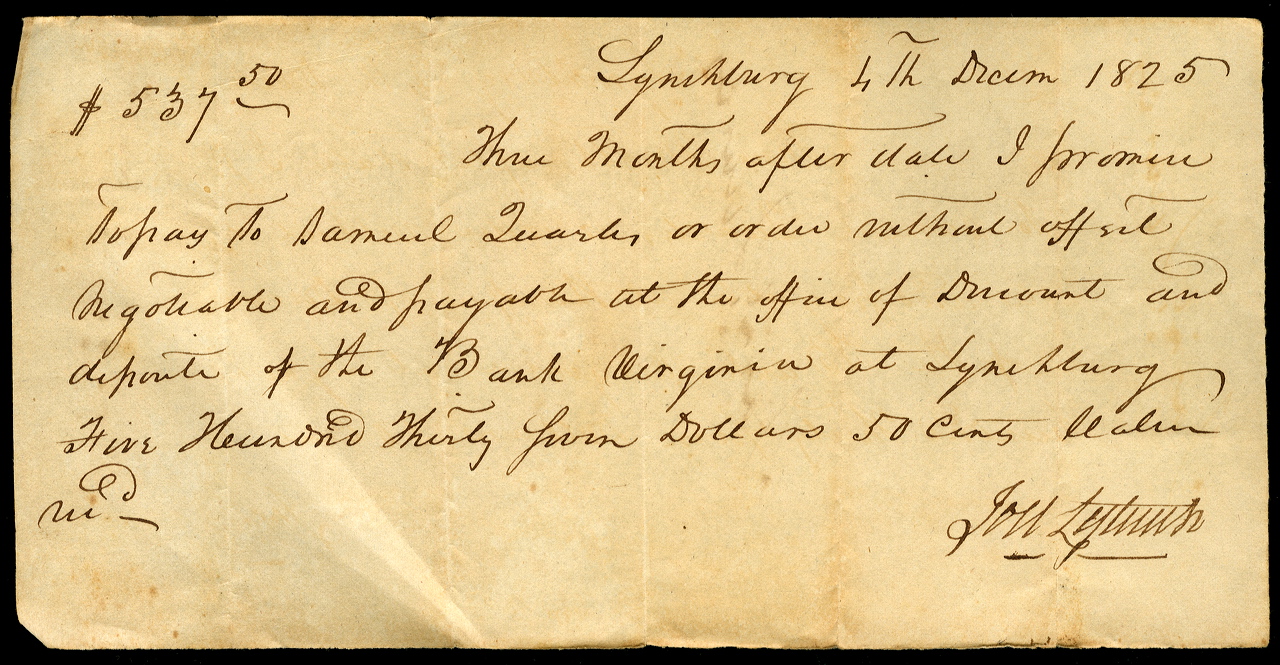 Lynchburg 4Th Decem 1825
$ 537 50
Three Months after date I promise
To pay To Samuel Quarles or order without offset
Negotiable and payable at the office of Discount and
deposite of the Bank Virginia at Lynchburg
Five Hundred Thirty seven Dollars 50 Cents Value
recd
Joel